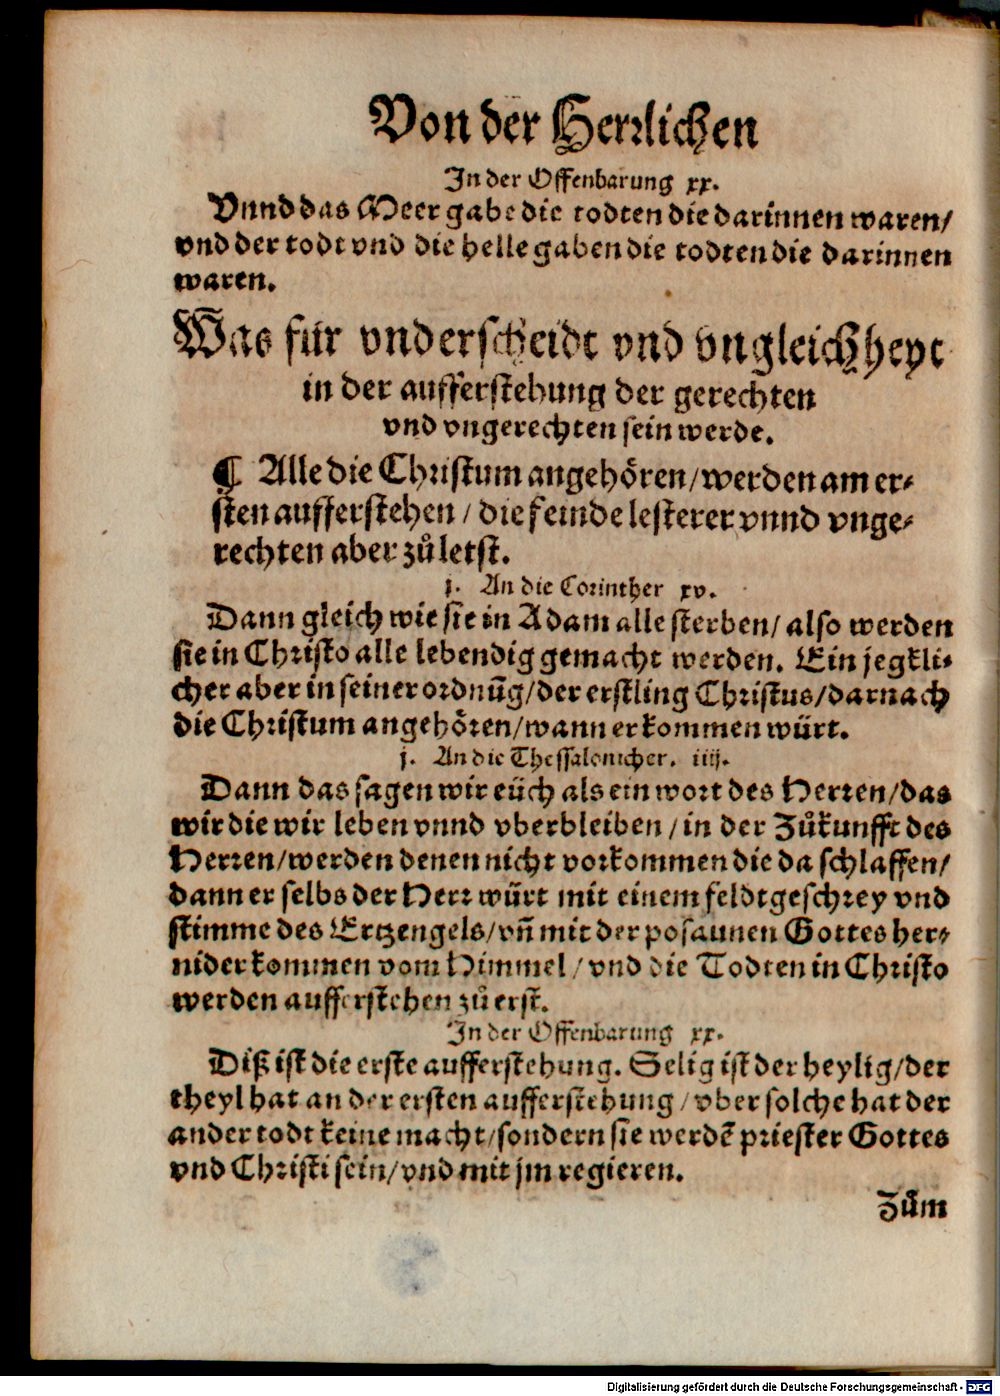 Von der Herrlichen
In der Offenbarung xx.
Vnnd das Meer gabe die todten die darinnen waren/
vnd der todt vnd die helle gaben die todten die darinnen
waren.
Was für vnderscheidt vnd vngleichheyt
in der aufferstehung der gerechten
vnd vngerechten sein werde.
¶ Alle die Christum angehören/werden am er-
sten aufferstehen/die feinde lesterer vnnd vnge-
rechten aber zůletst.
j. An die Corinther xv.
Dann gleich wie sie in Adam alle sterben/ also werden
sie in Christo alle lebendig gemacht werden. Ein jegkli-
cher aber in seiner ordnũg/der erstling Christus/darnach
die Christum angehören/wann er kommen würt.
j. An die Thessalonicher. iiij.
Dann das sagen wir eüch als ein wort des Herren/das
wir die wir leben vnnd vberbleiben/in der Zůkunfft des
Herren/werden denen nicht vorkommen die da schlaffen/
dann er selbs der Herr würt mit einem feldtgeschrey vnd
stimme des Ertzengels/vñ mit der posaunen Gottes her-
nider kommen vom Himmel/vnd die Todten in Christo
werden aufferstehen zů erst.
In der Offenbarung xx.
Diß ist die erste aufferstehung. Selig ist der heylig/der
theyl hat an der ersten aufferstehung/vber solche hat der
ander todt keine macht/sondern sie werdẽ priester Gottes
vnd Christi sein/vnd mit jm regieren.
Zům
Digitalisierung gefördert durch die Deutsche Forschungsgemeinschaft - DFG